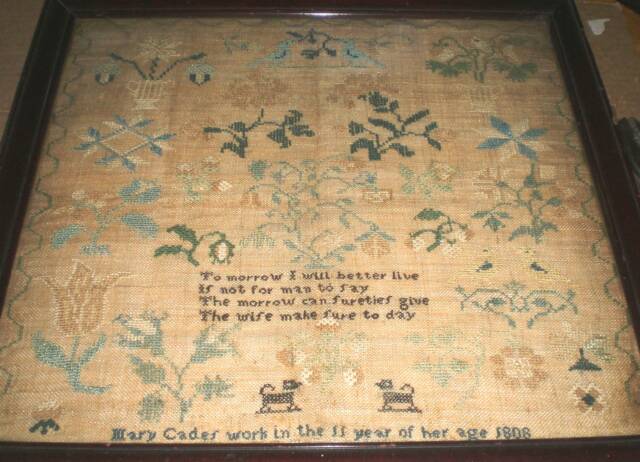 To morrow I will better live
Is not for man to say
The morrow can sureties give
The wise make sure to day
Mary Cades work in the 11 year of her age 1808